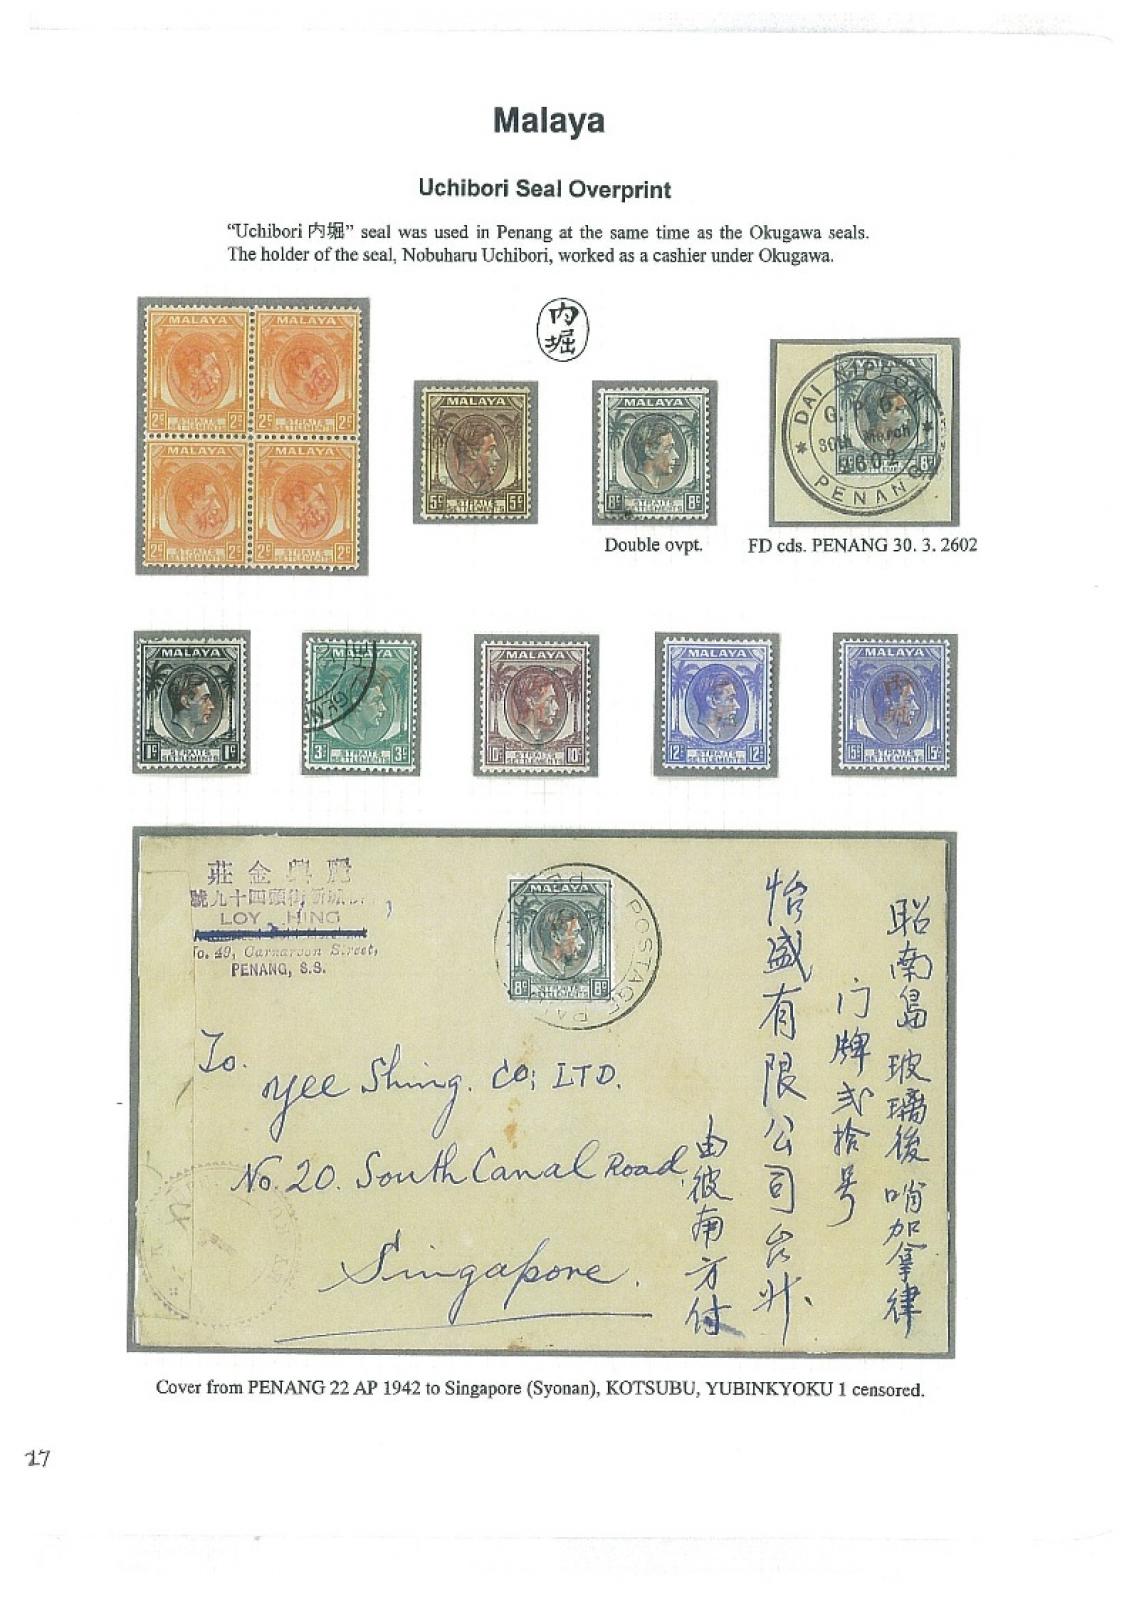 Malaya
Uchibori Seal Overprint
“Uchibori 内堀” seal was used in Penang at the same time as the Okugawa seals.
The holder of the seal, Nobuharu Uchibori, worked as a cashier under Okugawa.
内堀
MALAYA MALAYA
2c 2c 2c 2c
STRAITS SETTLEMENTS STRAITS SETTLEMENTS
MALAYA MALAYA
2c 2c 2c 2c
STRAITS SETTLEMENTS STRAITS SETTLEMENTS
MALAYA
5c 5c
STRAITS SETTLEMENTS
MALAYA
8c 8c
STRAITS SETTLEMENTS
DAI NIPPON
G.P.O.
30th March
2602
PENANG
8c
Double ovpt.
FD cds. PENANG 30. 3. 2602
MALAYA
1c 1c
STRAITS SETTLEMENTS
MALAYA
3c 3c
STRAITS SETTLEMENTS
MALAYA
10c 10c
STRAITS SETTLEMENTS
MALAYA
12c 12c
STRAITS SETTLEMENTS
MALAYA
15c 15c
STRAITS SETTLEMENTS
莊金興
號九十四頭街
LOY HING
No. 49, Carnarvon Street,
PENANG, S.S.
MALAYA
8c 8c
STRAITS SETTLEMENTS
POSTAGE PAI
To.
Yee Shing. Co; LTD.
No. 20. South Canal Road,
Singapore.
昭南島玻璃後哨加拿律
门牌弍拾号
怡盛有限公司台升
由彼南方付
Cover from PENANG 22 AP 1942 to Singapore (Syonan), KOTSUBU, YUBINKYOKU 1 censored.
17